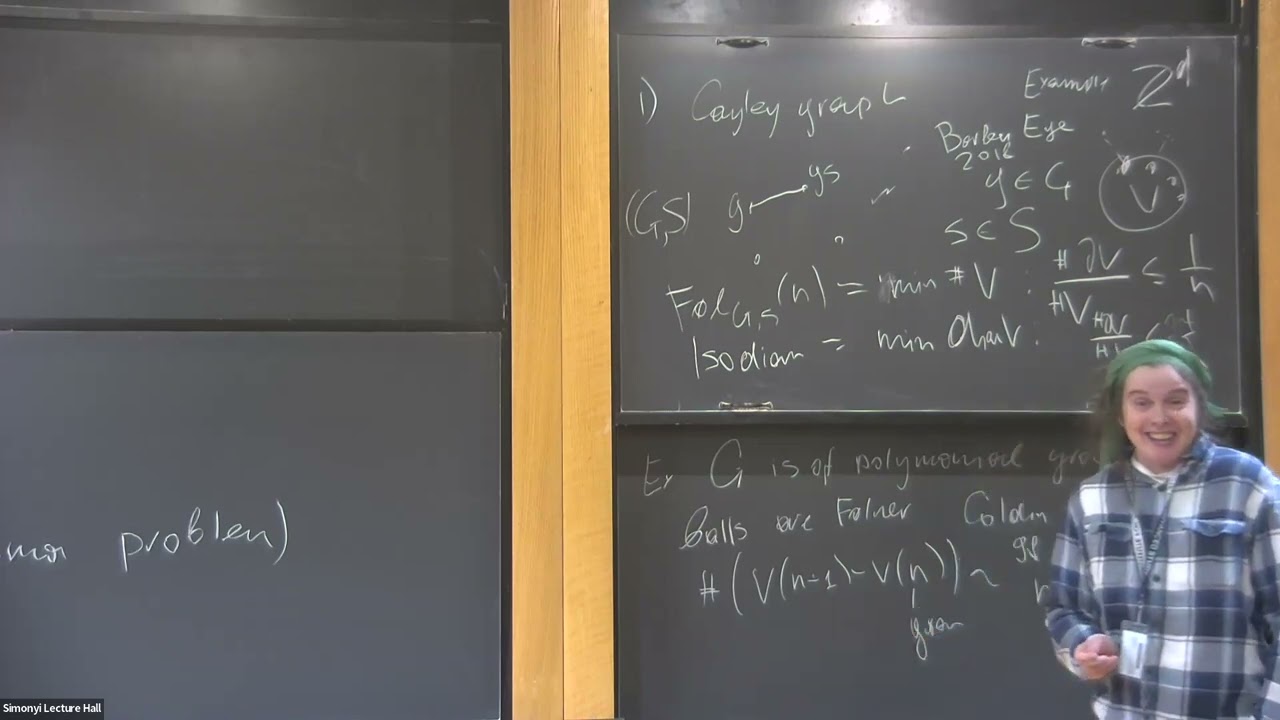 problem)
1) Cayley graph
Example Z^d
Eye
2018
(G,S) g gs
g ∈ G
V
s ∈ S
Fol_{G,S}(n) = min # V : #∂V / #V ≤ 1/n
Isodiam = min diam V :
Ex G is of polynomial
Balls are Folner
#(V(n-1) - V(n)) ~
Simonyi Lecture Hall